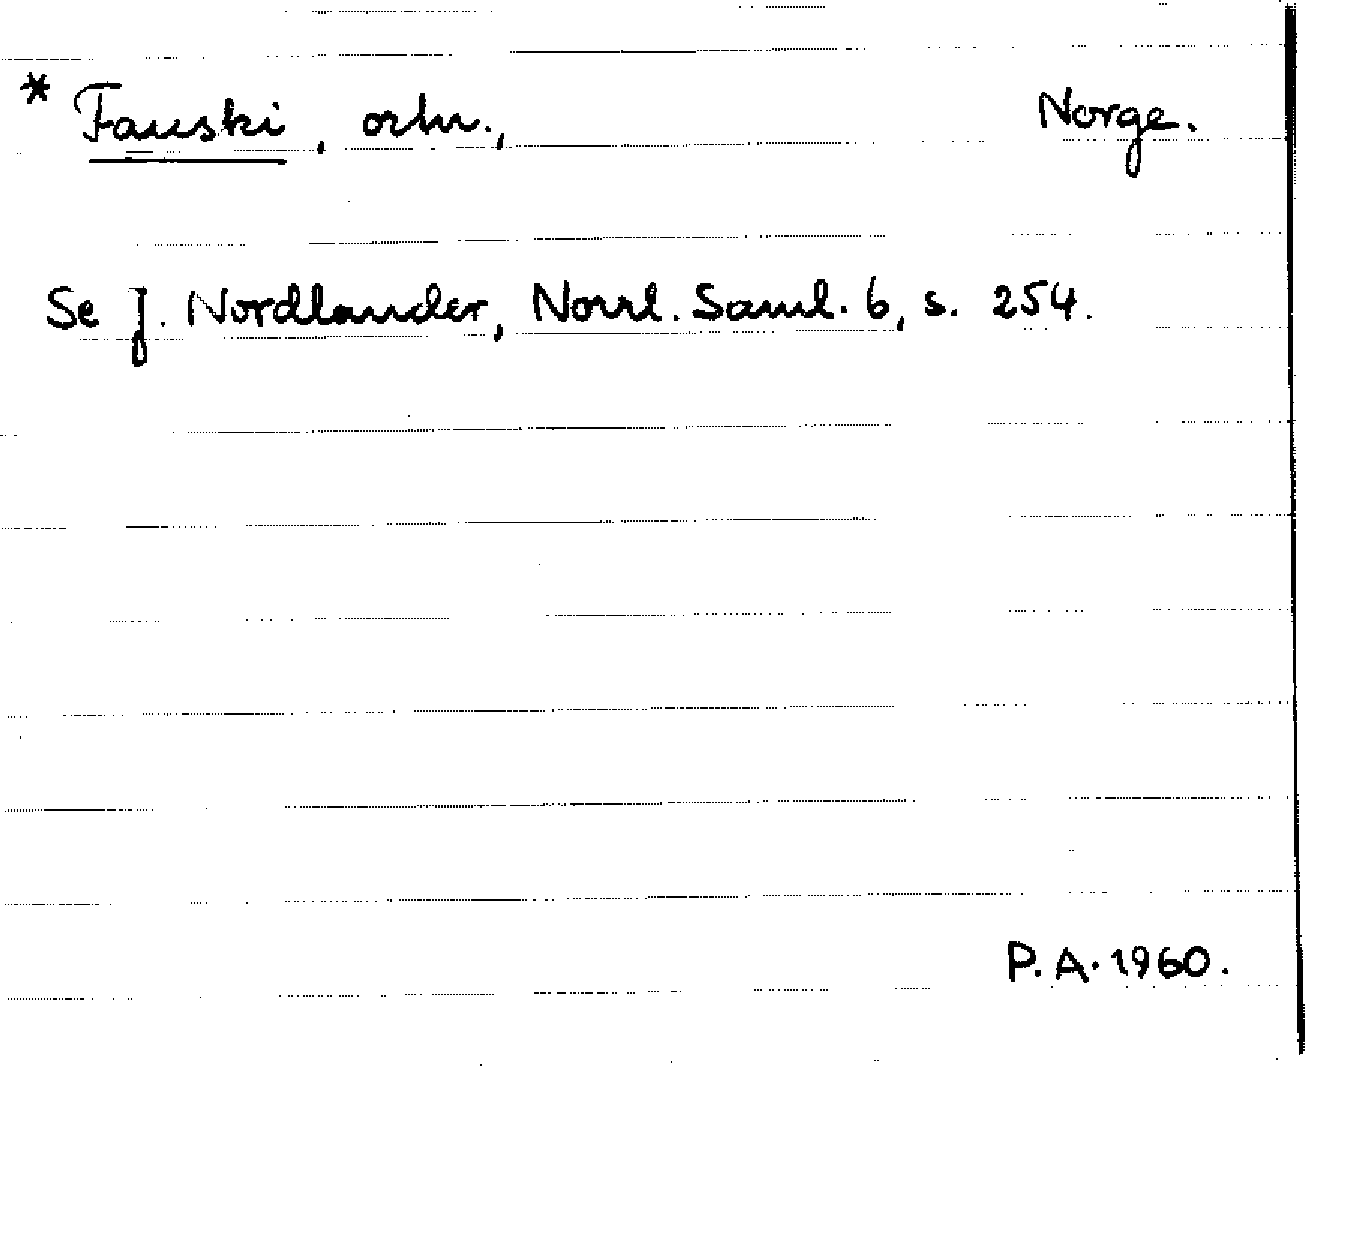 * Fauski, ortn., Norge.
Se J. Nordlander, Norrl. Saml. 6, s. 254.
P. A. 1960.